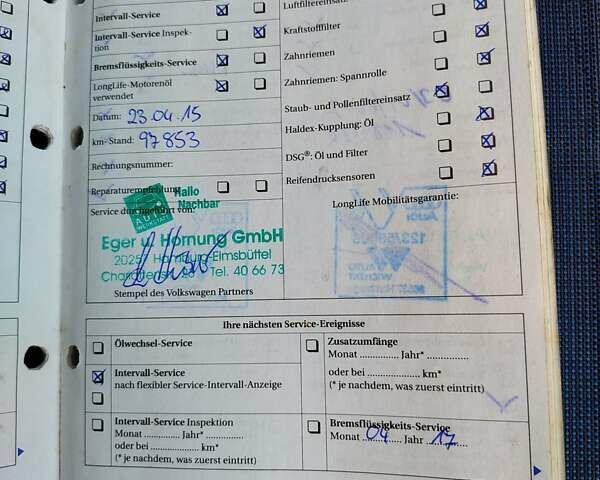 Intervall-Service
Intervall-Service Inspek-
tion
Bremsflüssigkeits-Service
LongLife-Motorenöl
verwendet
Datum: 23.04.15
km-Stand: 97853
Rechnungsnummer:
Reparaturempfehlung
Service durchgeführt von:
Hallo
Nachbar
AUTO
WERKSTATT
Eger u. Hornung GmbH
Hamburg-Eimsbüttel
Tel. 40 66 73
Stempel des Volkswagen Partners
Luftfiltereinsatz
Kraftstofffilter
Zahnriemen
Zahnriemen: Spannrolle
Staub- und Pollenfiltereinsatz
Haldex-Kupplung: Öl
DSG®: Öl und Filter
Reifendrucksensoren
LongLife Mobilitätsgarantie:
Ihre nächsten Service-Ereignisse
Ölwechsel-Service
Intervall-Service
nach flexibler Service-Intervall-Anzeige
Intervall-Service Inspektion
Monat .............. Jahr*..............
oder bei .................... km*
(* je nachdem, was zuerst eintritt)
Zusatzumfänge
Monat .............. Jahr*..............
oder bei .................... km*
(* je nachdem, was zuerst eintritt)
Bremsflüssigkeits-Service
Monat 04 Jahr 17